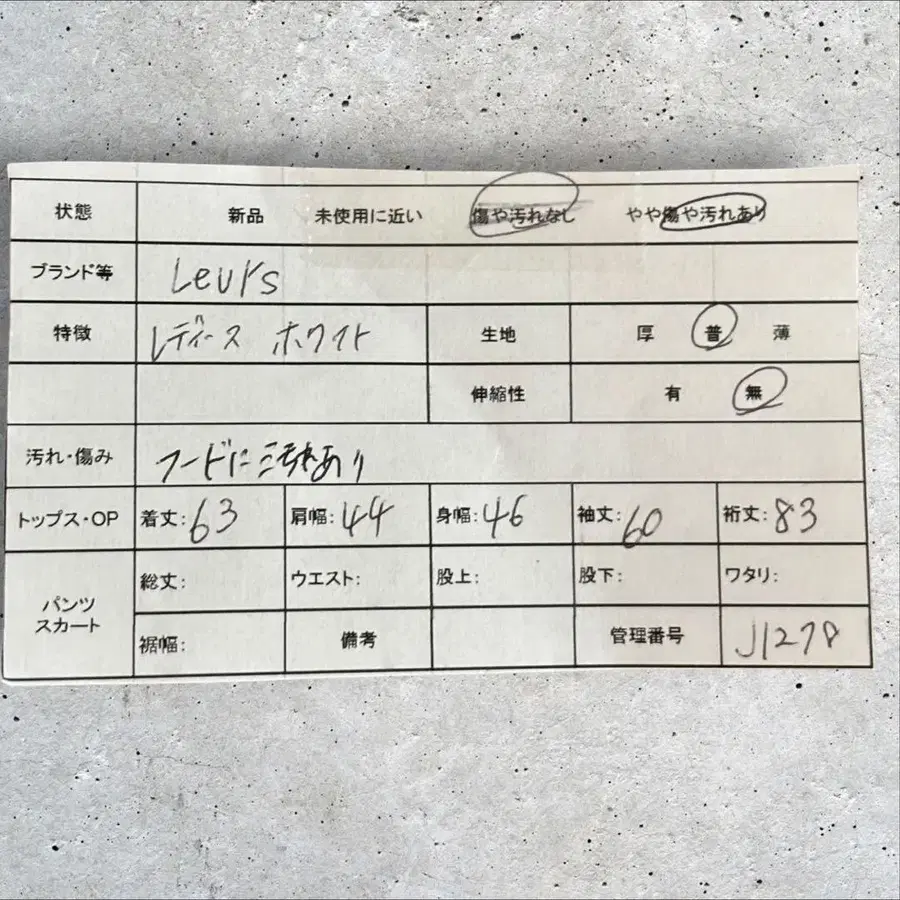 状態 新品 未使用に近い 傷や汚れなし やや傷や汚れあり
ブランド等 Levi's
特徴 レディース ホワイト 生地 厚 普 薄
伸縮性 有 無
汚れ・傷み フードに汚れあり
トップス・OP 着丈:63 肩幅:44 身幅:46 袖丈:60 裄丈:83
パンツ スカート 総丈: ウエスト: 股上: 股下: ワタリ:
裾幅: 備考 管理番号 J1278